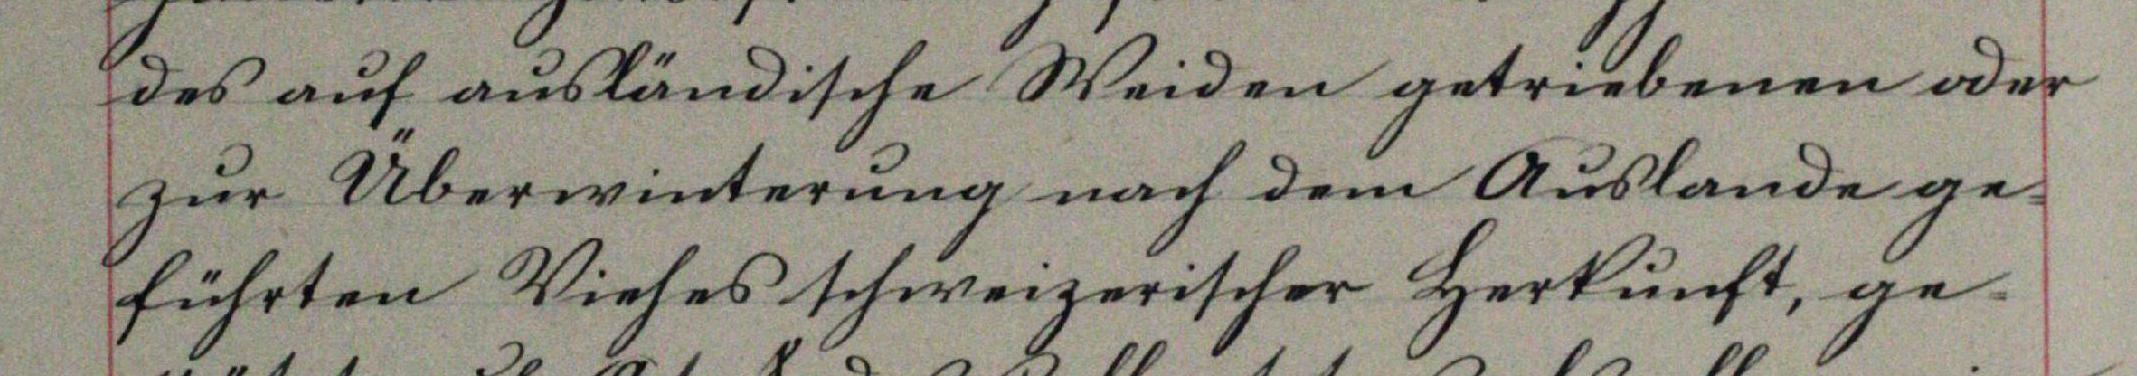 des auf ausländische Weiden getriebenen oder
zur Überwinterung nach dem Auslande ge-
führten Viehes schweizerischer Herkunft, ge-